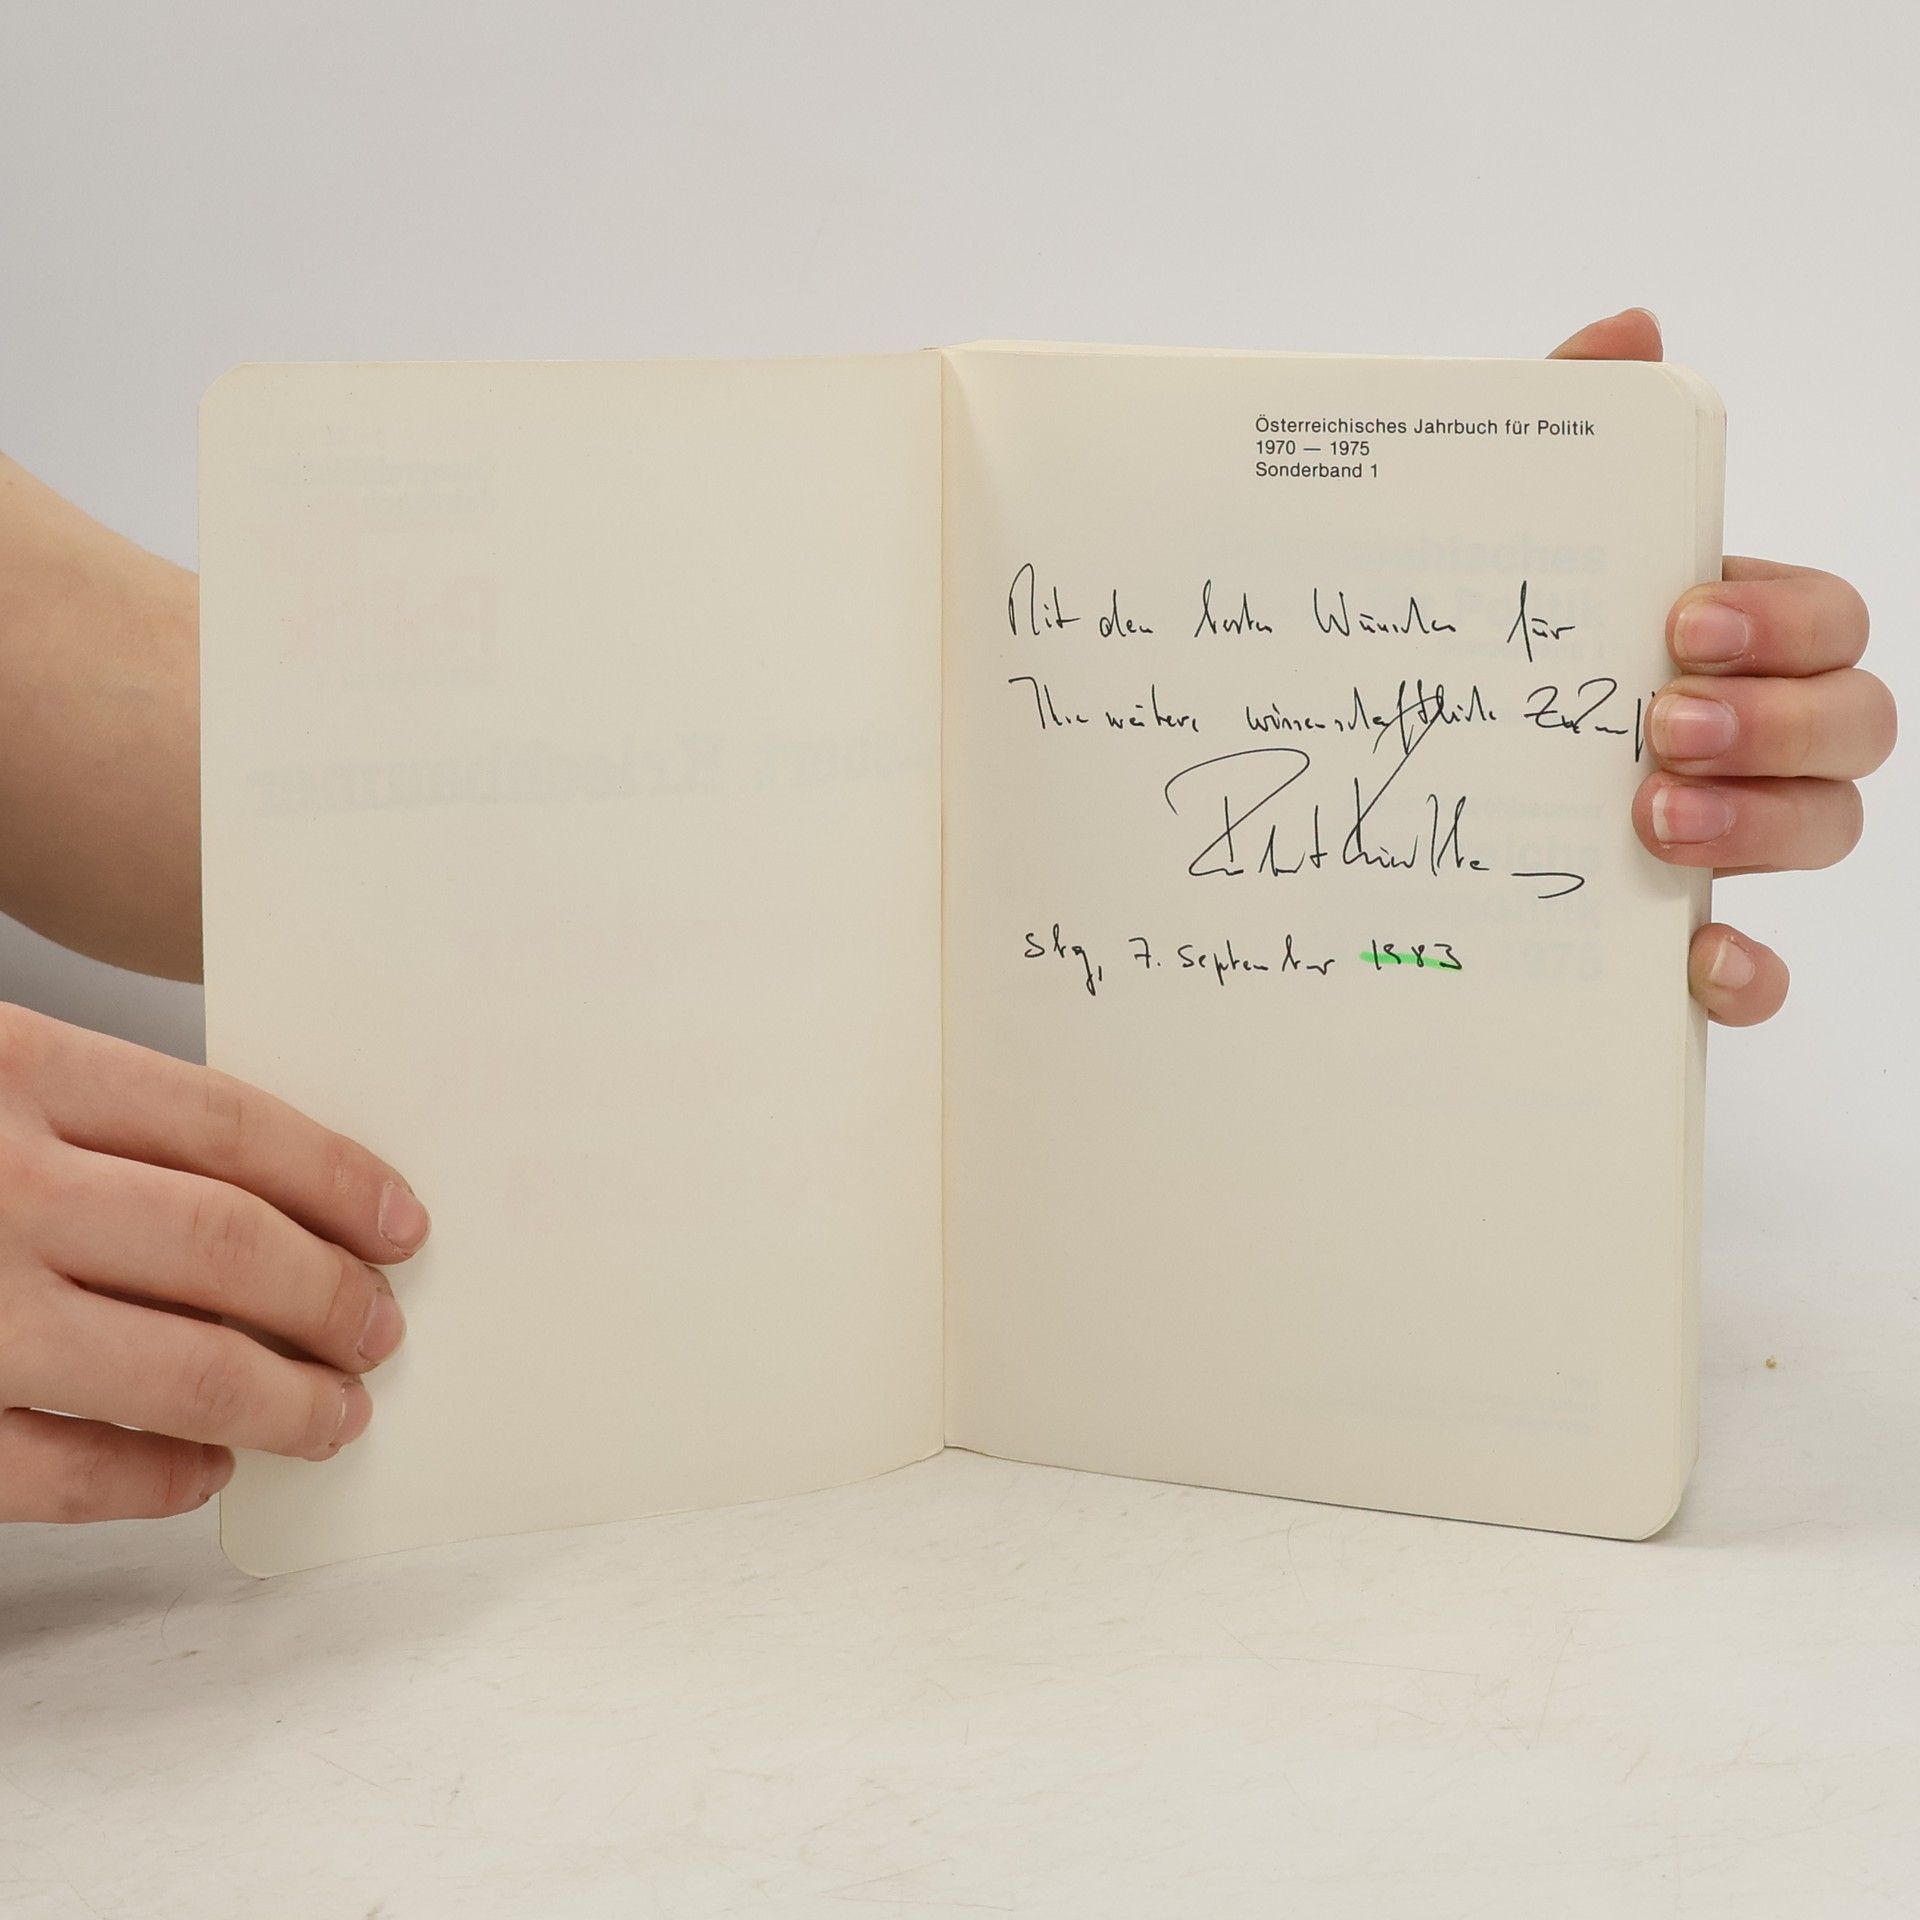 Österreichisches Jahrbuch für Politik
1970 — 1975
Sonderband 1
Mit den besten Wünschen für
Ihre weitere wissenschaftliche
Robert
Sbg, 7. September 1983